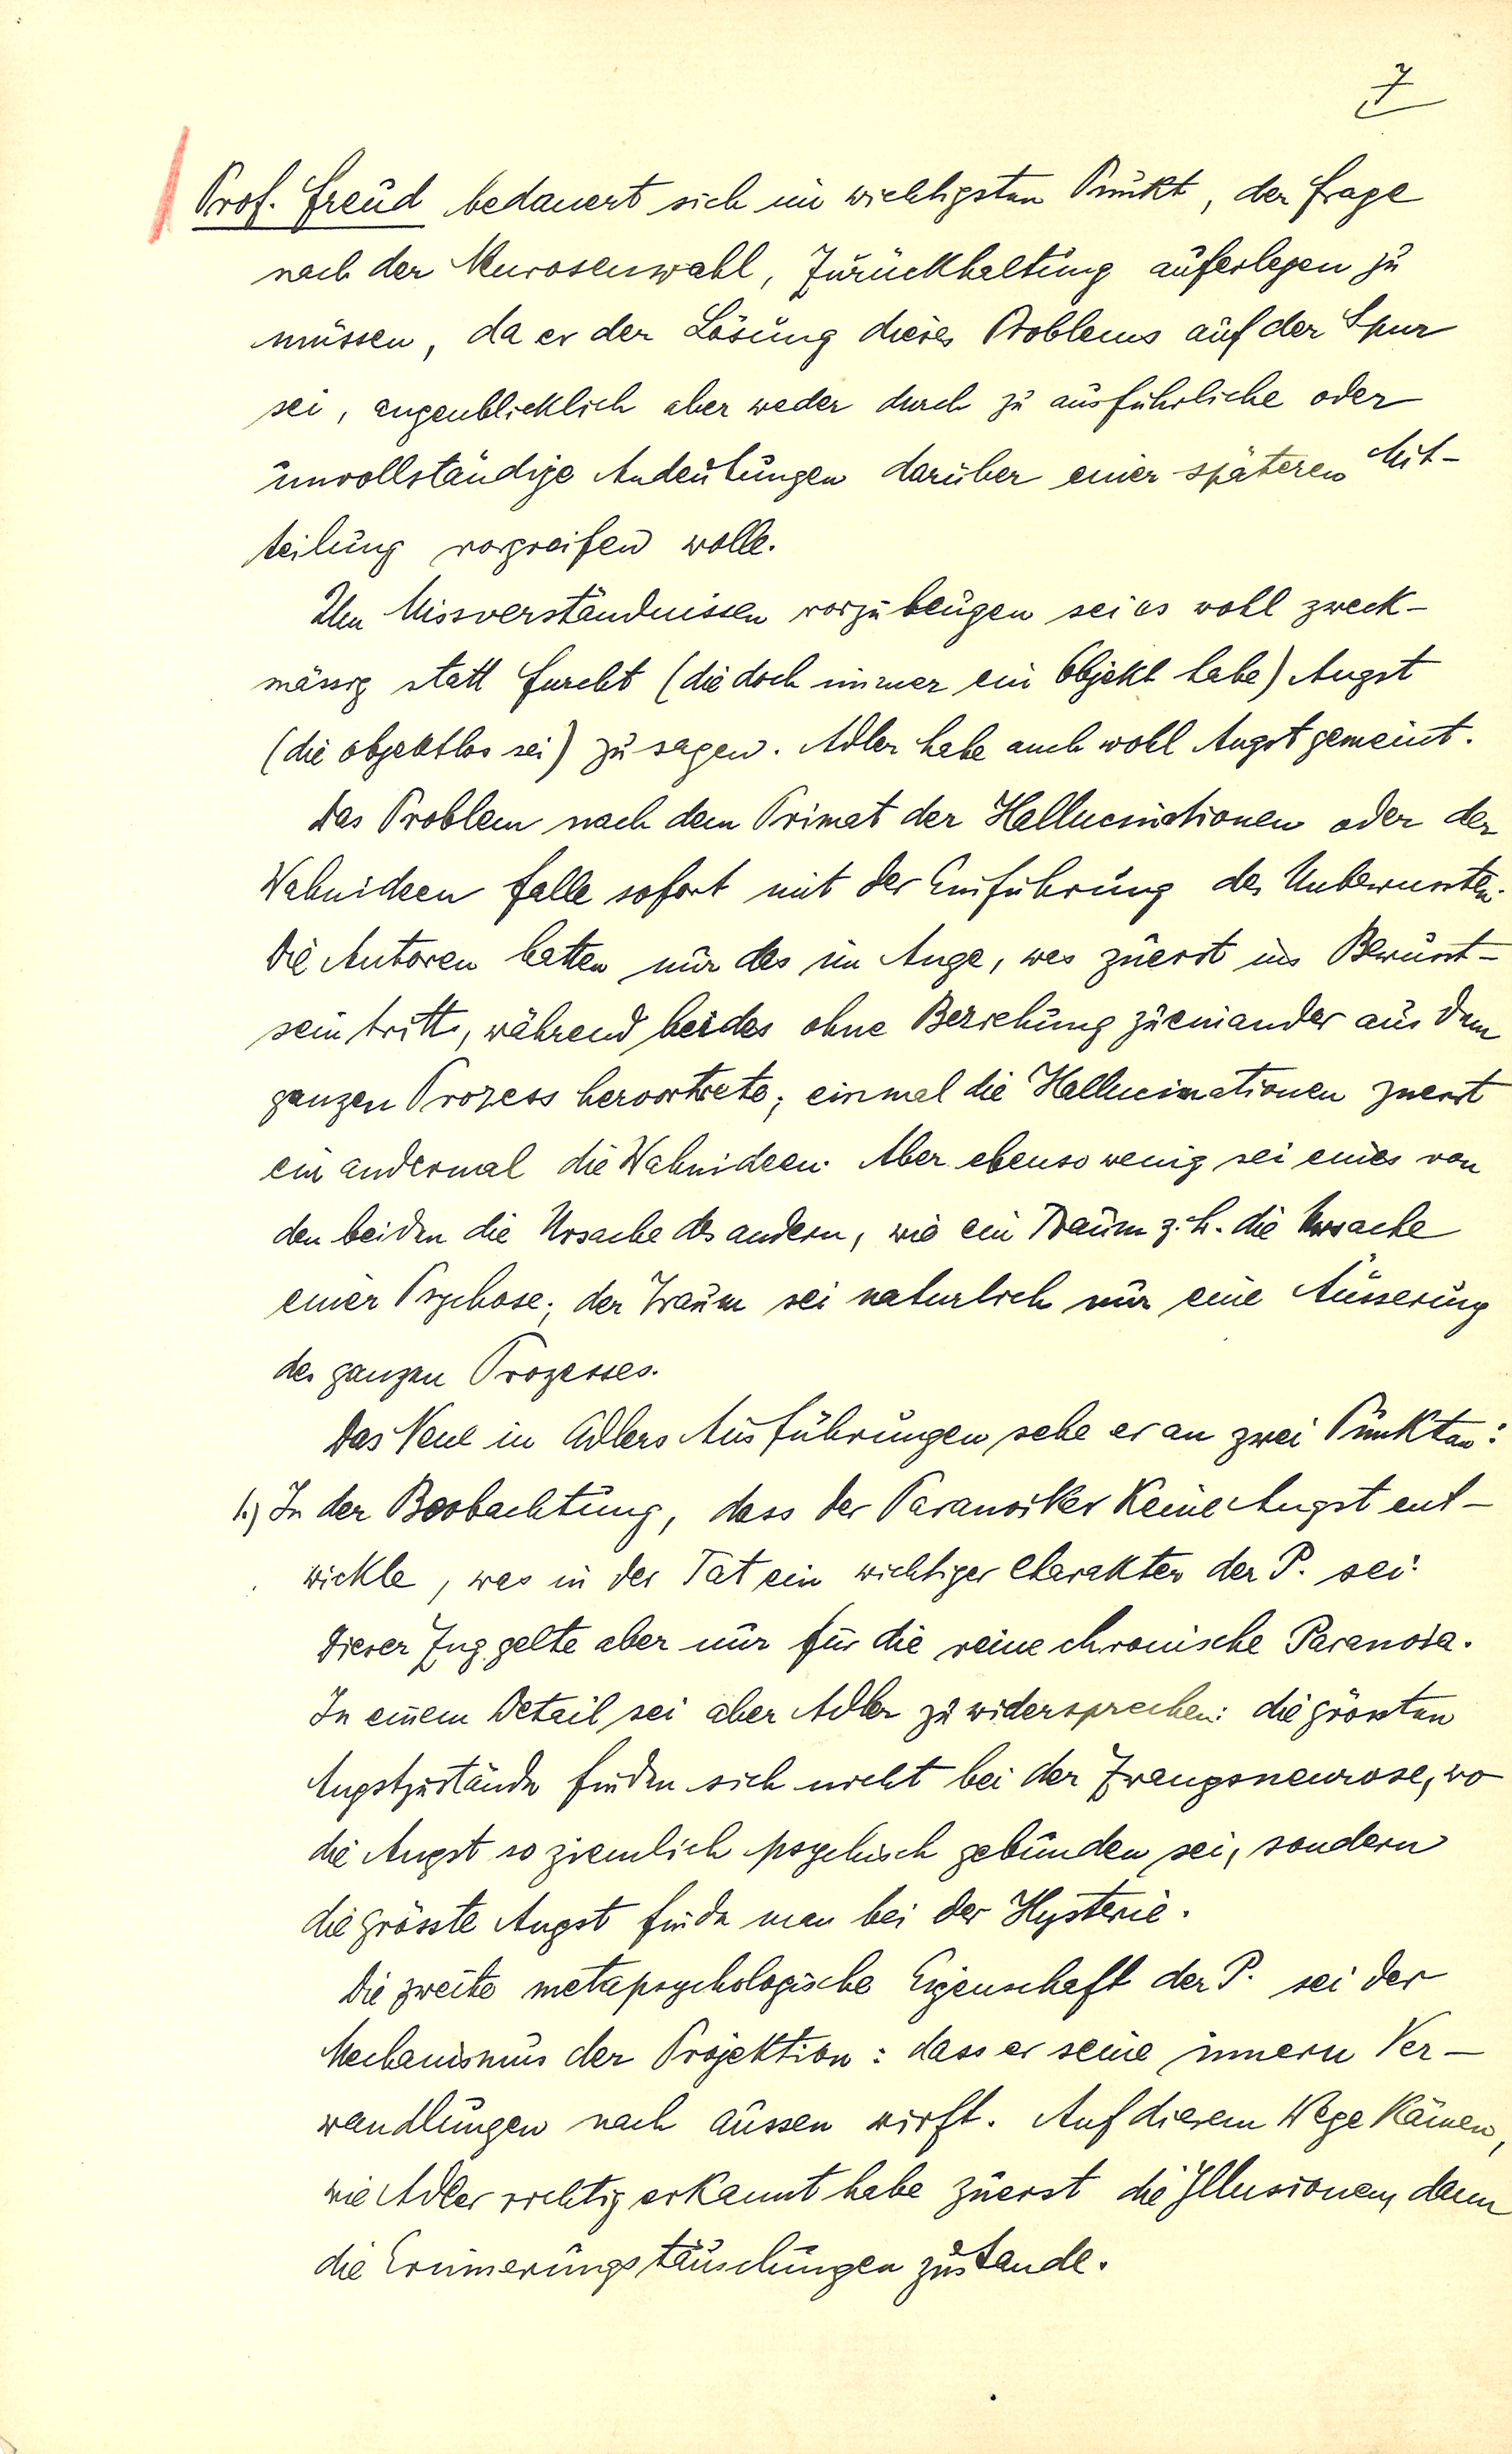 7
Prof. Freud bedauert sich im wichtigsten Punkt, der Frage
nach der Neurosenwahl, Zurückhaltung auferlegen zu
müssen, da er der Lösung dieses Problems auf der Spur
sei, augenblicklich aber weder durch zu ausführliche oder
unvollständige Andeutungen darüber einer späteren Mit-
teilung vorgreifen wolle.
Um Missverständnissen vorzubeugen sei es wohl zweck-
mässig statt Furcht (die doch immer ein Objekt habe) Angst
(die objektlos sei) zu sagen. Adler habe auch wohl Angst gemeint.
Das Problem nach dem Primat der Hallucinationen oder der
Wahnideen falle sofort mit der Einführung des Unbewussten.
Die Autoren hatten nur das im Auge, was zuerst ins Bewusst-
sein tritt, während beides ohne Beziehung zueinander aus dem
ganzen Prozess hervortrete; einmal die Hallucinationen zuerst
ein andermal die Wahnideen. Aber ebenso wenig sei eines von
den beiden die Ursache des andern, wie ein Traum z. B. die Ursache
einer Psychose; der Traum sei natürlich nur eine Äusserung
des ganzen Prozesses.
Das Neue in Adlers Ausführungen sehe er an zwei Punkten:
1.) In der Beobachtung, dass der Paranoiker keine Angst ent-
wickle, was in der Tat ein wichtiger Charakter der P. sei.
Dieser Zug gelte aber nur für die reine chronische Paranoia.
In einem Detail sei aber Adler zu widersprechen: die grössten
Angstzustände finden sich nicht bei der Zwangsneurose, wo
die Angst so ziemlich psychisch gebunden sei, sondern
die grösste Angst finde man bei der Hysterie.
Die zweite metapsychologische Eigenschaft der P. sei der
Mechanismus der Projektion: dass er seine innern Ver-
wandlungen nach aussen wirft. Auf diesem Wege kämen,
wie Adler richtig erkannt habe zuerst die Illusionen, dann
die Erinnerungstäuschungen zustande.